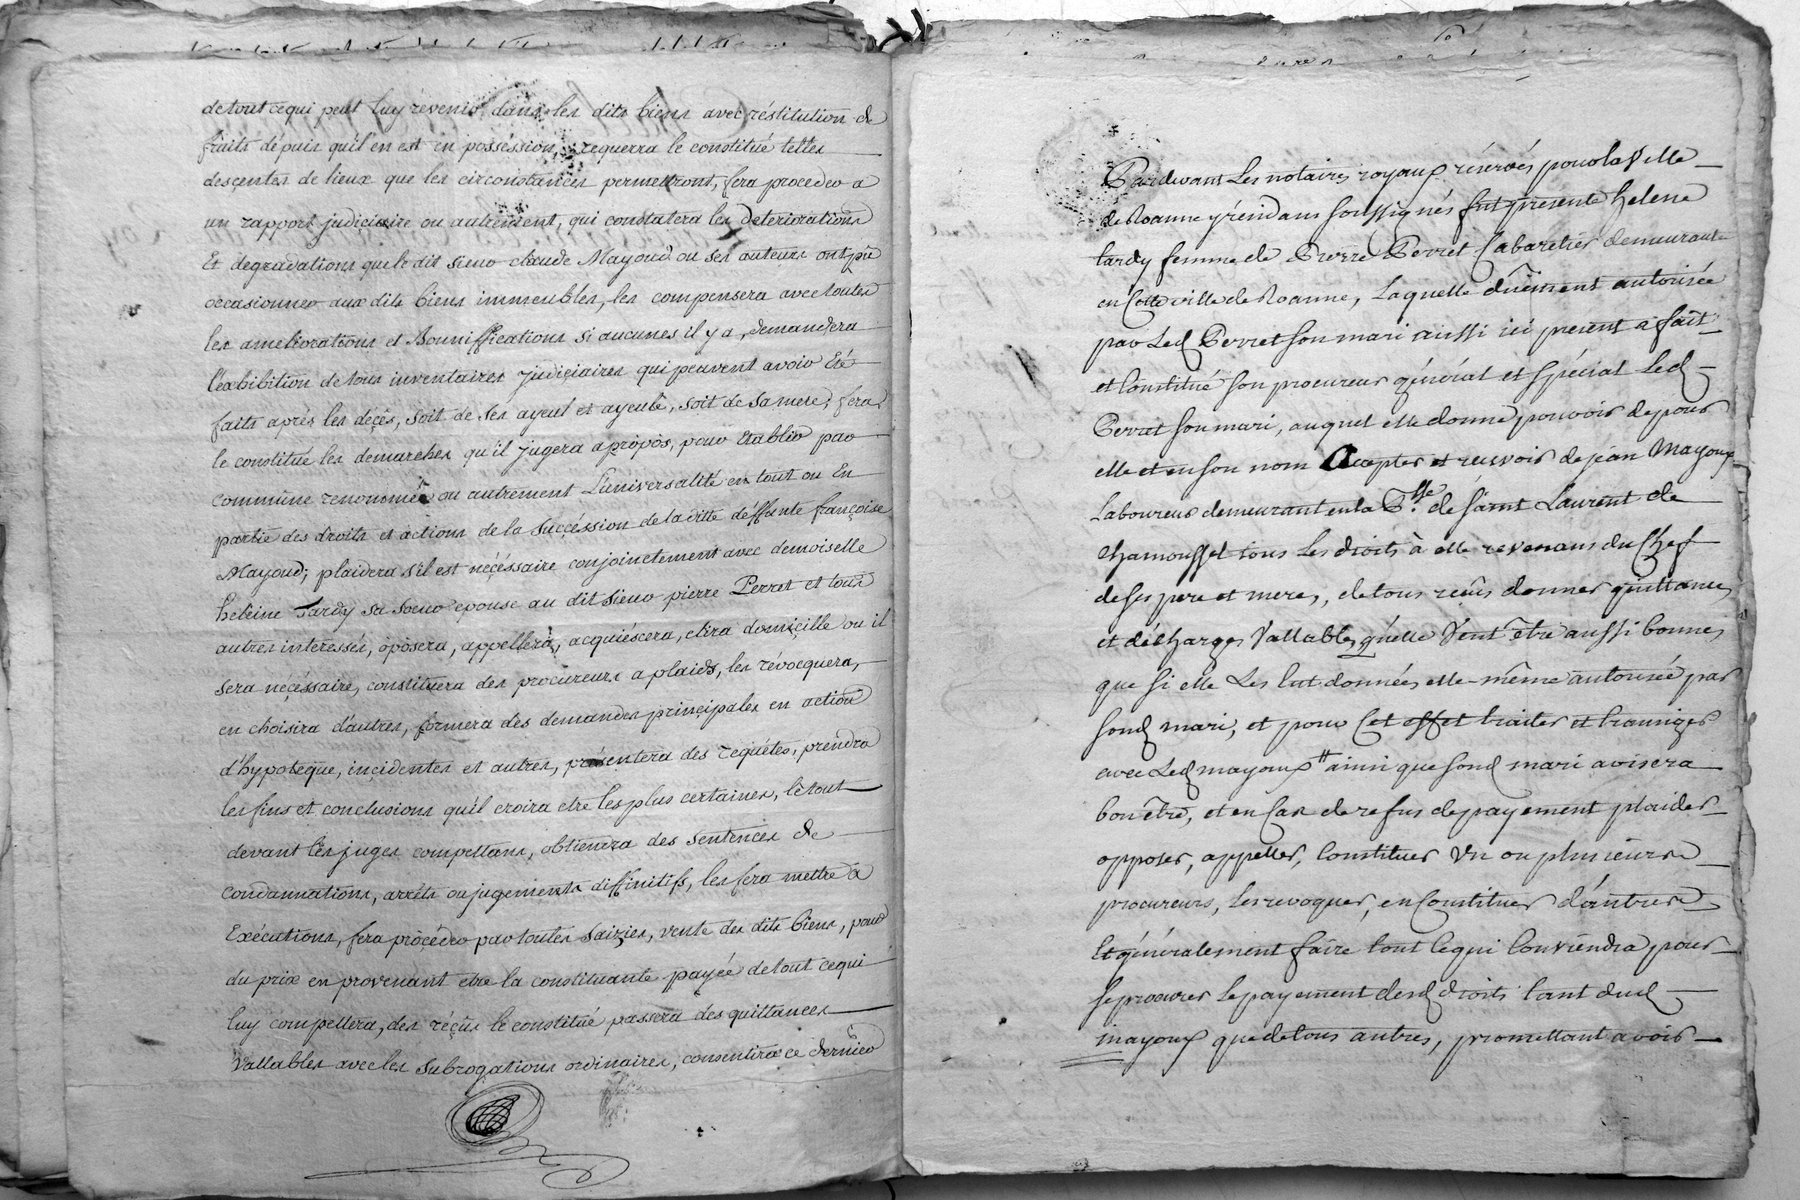 de tout ce qui peut luy revenir dans les dits biens avec réstitution de
fruits dépuis qu'il en est en posséssion, requerra le constitué telles
desçentes de lieux que les circonstances permettront, fera proceder a
un rapport judiciaire ou autrement, qui constatera les deteriorations
Et degradations que le dit sieur claude Mayoud ou ses auteurs ont pû
occasionner aux dits biens immeubles, les compensera avec toutes
les ameliorations et Bouniffications si aucunes il y a, demandera
l'éxhibition de tous inventaires judiçiaires qui peuvent avoir Eté
faits après les deçès, soit de ses ayeul et ayeule, soit de sa mere; fera
le constitué les demarches qu'il jugera apropòs, pour Etablir par
commune renommée ou autrement L'universalité en tout ou En
partie des droits et actions de la sucçéssion de la ditte déffunte françoise
Mayoud; plaidera s'il est néçéssaire conjoinctement avec demoiselle
heleine Tardy sa soeur epouse au dit sieur pierre Perret et tous
autres interessés, òpòsera, appellera, acquiéscera, elira domiçille ou il
sera néçéssaire, constituera des procureurs a plaids, les révocquera,
en choisira d'autres, formera des demandes prinçipales en action
d'hypoteque, inçidentes et autres, présentera des requétes, prendra
les fins et conclusions qu'il croira etre les plus certaines, le tout
devant les juges compettans, obtiendra des sentences de
condamnations, arrèts ou jugements diffinitifs, les fera mettre à
Exécutions, fera procéder par toutes saizies, vente des dits biens, pour
du prix en provenant etre la constituante payée de tout ce qui
luy compettera, des réçus le constitué passera des quittances
Vallables avec les subrogations ordinaires, consentira ce dernier
Pardevant Les notaires royaux réservés pour la Ville
de Roanne y résidans soussignés fut presente helene
tardy femme de Pierre Perret Cabaretier demeurante
en Cette ville de Roanne, Laquelle dûëment autorisée
par Led Perret son mari aussi ici present a fait
et Constitué son procureur général et spécial Led
Perret son mari, auquel elle donne pouvoir de pour
elle et en son nom Accepter et recevoir de jean Mayoux
Laboureur demeurant en la P.sse de saint Laurent de
chamousset tous Les droits à elle revenans du Chef
de ses pere et mere, de tous reçûs donner quittances
et décharges Vallables, qu'elle Veut être aussi bonnes
que si elle Les eut données elle-même autorisée par
sond mari, et pour Cet effet traiter et transiger
avec Led mayoux ainsi que sond mari avisera
bon être, et en Cas de refus de payement plaider
opposer, appeller, Constituer Un ou plusieurs
procureurs, les revoquer, en Constituer d'autres
Et généralement faire tout Ce qui Conviendra pour
se procurer Le payement desd droits tant dud
mayoux que de tous autres, promettant avoir